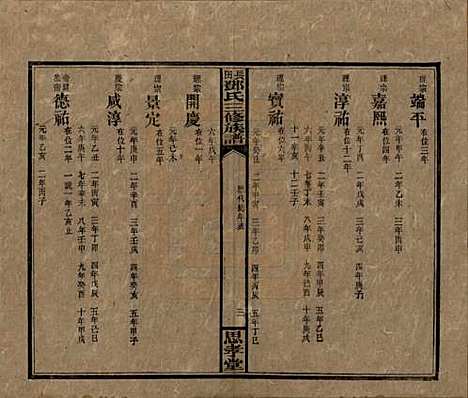 理宗
端平
在位三年
元年甲午 二年乙未 三年丙申
嘉熙
在位四年
元年丁酉 二年戊戌 三年己亥 四年庚子
理宗
淳祐
在位十二年
元年辛丑 二年壬寅 三年癸卯 四年甲辰 五年乙巳
六年丙午 七年丁未 八年戊申 九年己酉 十年庚戌
十一年辛亥 十二年壬子
理宗
寶祐
在位六年
元年癸丑 二年甲寅 三年乙卯 四年丙辰 五年丁巳
鄧氏三修族譜
歷代紀年表
三
思孝堂
六年戊午
開慶
在位一年
元年己未
理宗
景定
在位五年
元年庚申 二年辛酉 三年壬戌 四年癸亥 五年甲子
度宗
咸淳
在位十年
元年乙丑 二年丙寅 三年丁卯 四年戊辰 五年己巳
六年庚午 七年辛未 八年壬申 九年癸酉 十年甲戌
德祐
在位二年
元年乙亥 二年丙子